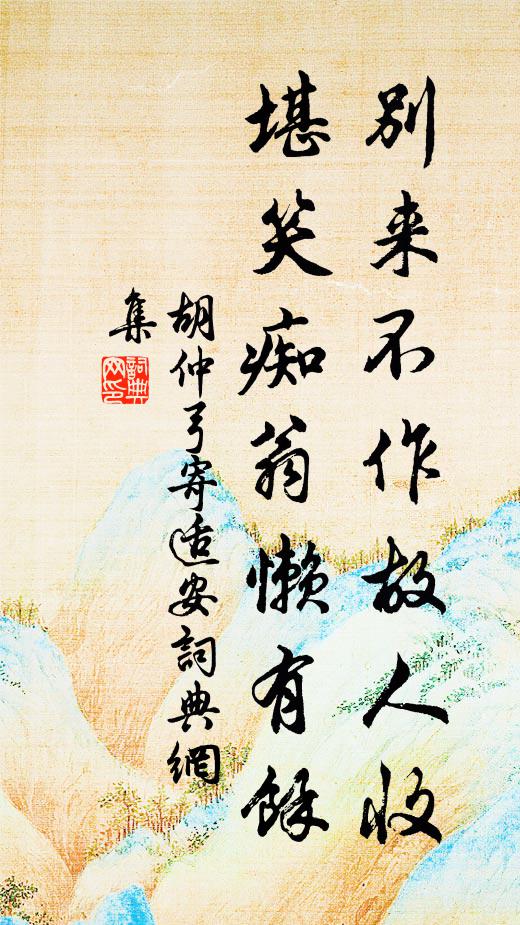 别来不作故人收
堪笑痴翁懒有餘
胡仲弓寄适安詞典網
集
詞典
网印